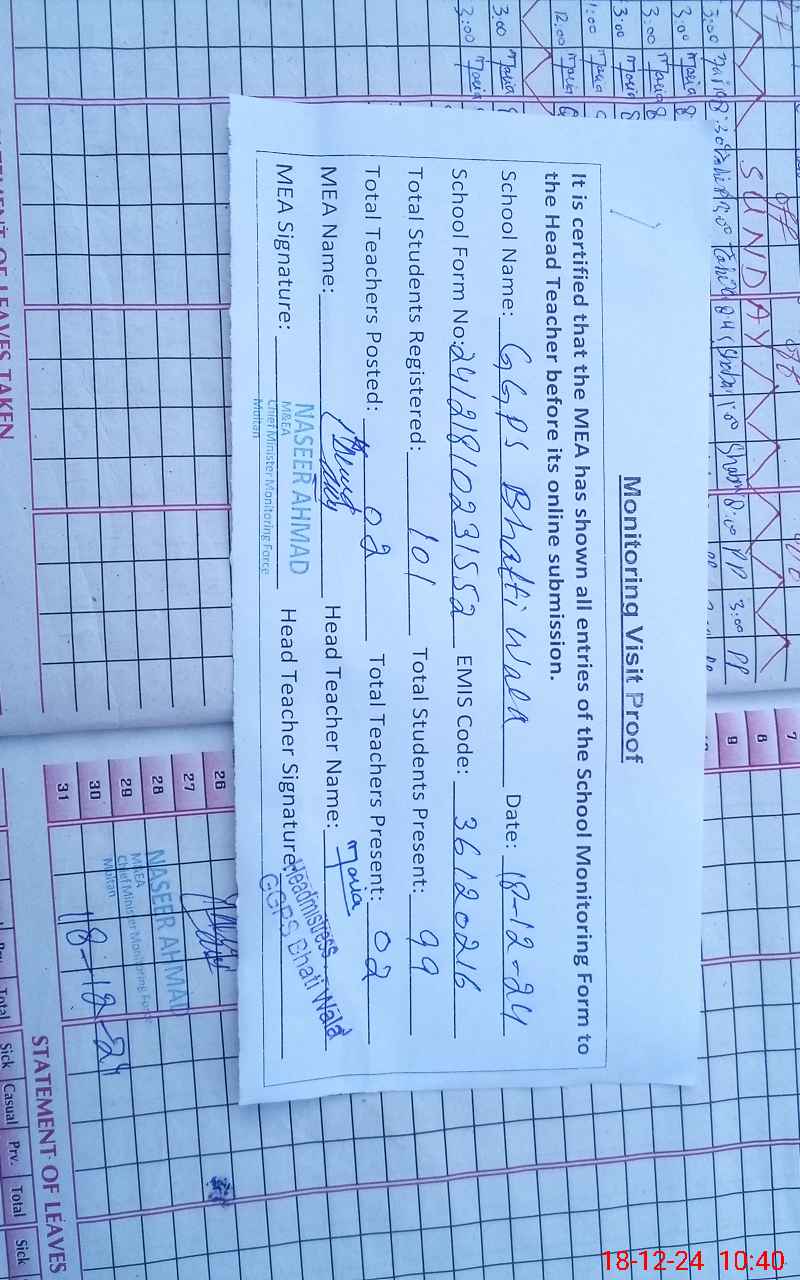 Monitoring Visit Proof
It is certified that the MEA has shown all entries of the School Monitoring Form to
the Head Teacher before its online submission.
School Name: GGPS Bhatti Wala Date: 18-12-24
School Form No: 24121810231552 EMIS Code: 36120216
Total Students Registered: 101 Total Students Present: 99
Total Teachers Posted: 02 Total Teachers Present: 02
MEA Name: Head Teacher Name: Maria
MEA Signature: Head Teacher Signature:
NASEER AHMAD
M&EA
Chief Minister Monitoring Force
Multan
Headmistress
GGPS Bhati Wala
SUNDAY
off
3:00 Maria 8
3:00 Maria 8
3:00 Maria 8
1:00 Maria
12:00 Maria
3:00 Maria 8
3:00 Maria
7
8
9
26
27
28
29
30
31
NASEER AHMAD
M&EA
Chief Minister Monitoring Force
Multan
18-12-24
STATEMENT OF LEAVES TAKEN
STATEMENT OF LEAVES
Prv. Total Sick Casual Prv. Total Sick
18-12-24 10:40